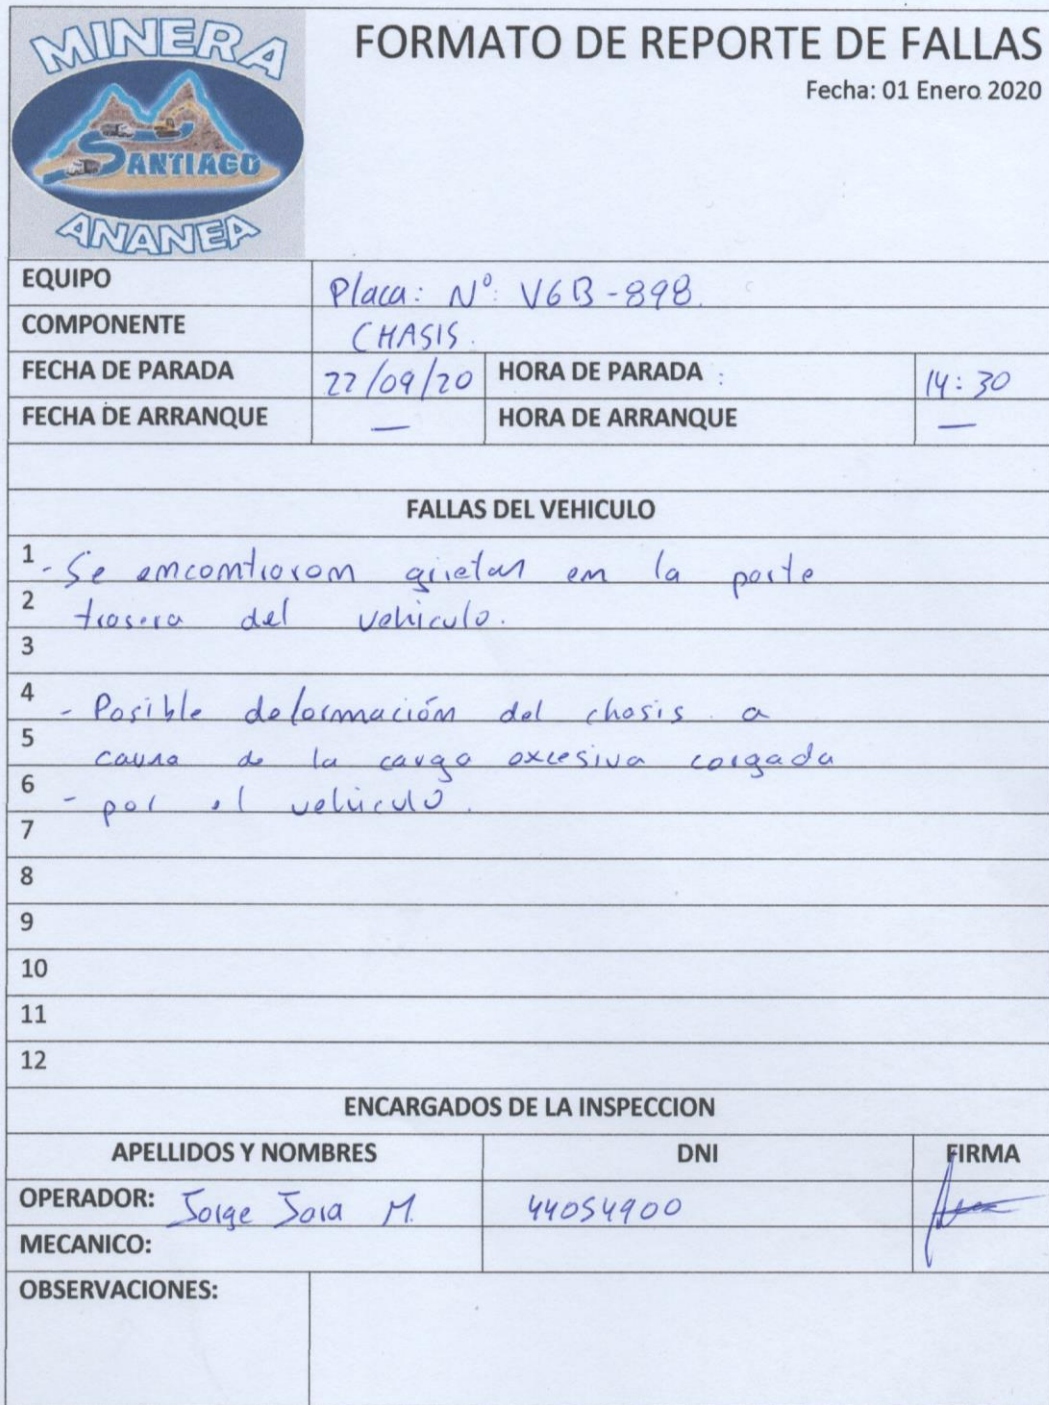 MINERA
SANTIAGO
ANANEA
FORMATO DE REPORTE DE FALLAS
Fecha: 01 Enero 2020
EQUIPO Placa: Nº: V6B-898.
COMPONENTE CHASIS.
FECHA DE PARADA 22/09/20 HORA DE PARADA : 14:30
FECHA DE ARRANQUE — HORA DE ARRANQUE —
FALLAS DEL VEHICULO
1 - Se encontraron grietas en la parte
2 trasera del vehiculo.
3
4 - Posible deformación del chasis a
5 causa de la carga excesiva cargada
6 - por el vehiculo.
7
8
9
10
11
12
ENCARGADOS DE LA INSPECCION
APELLIDOS Y NOMBRES DNI FIRMA
OPERADOR: Jorge Jora M. 44054900
MECANICO:
OBSERVACIONES: